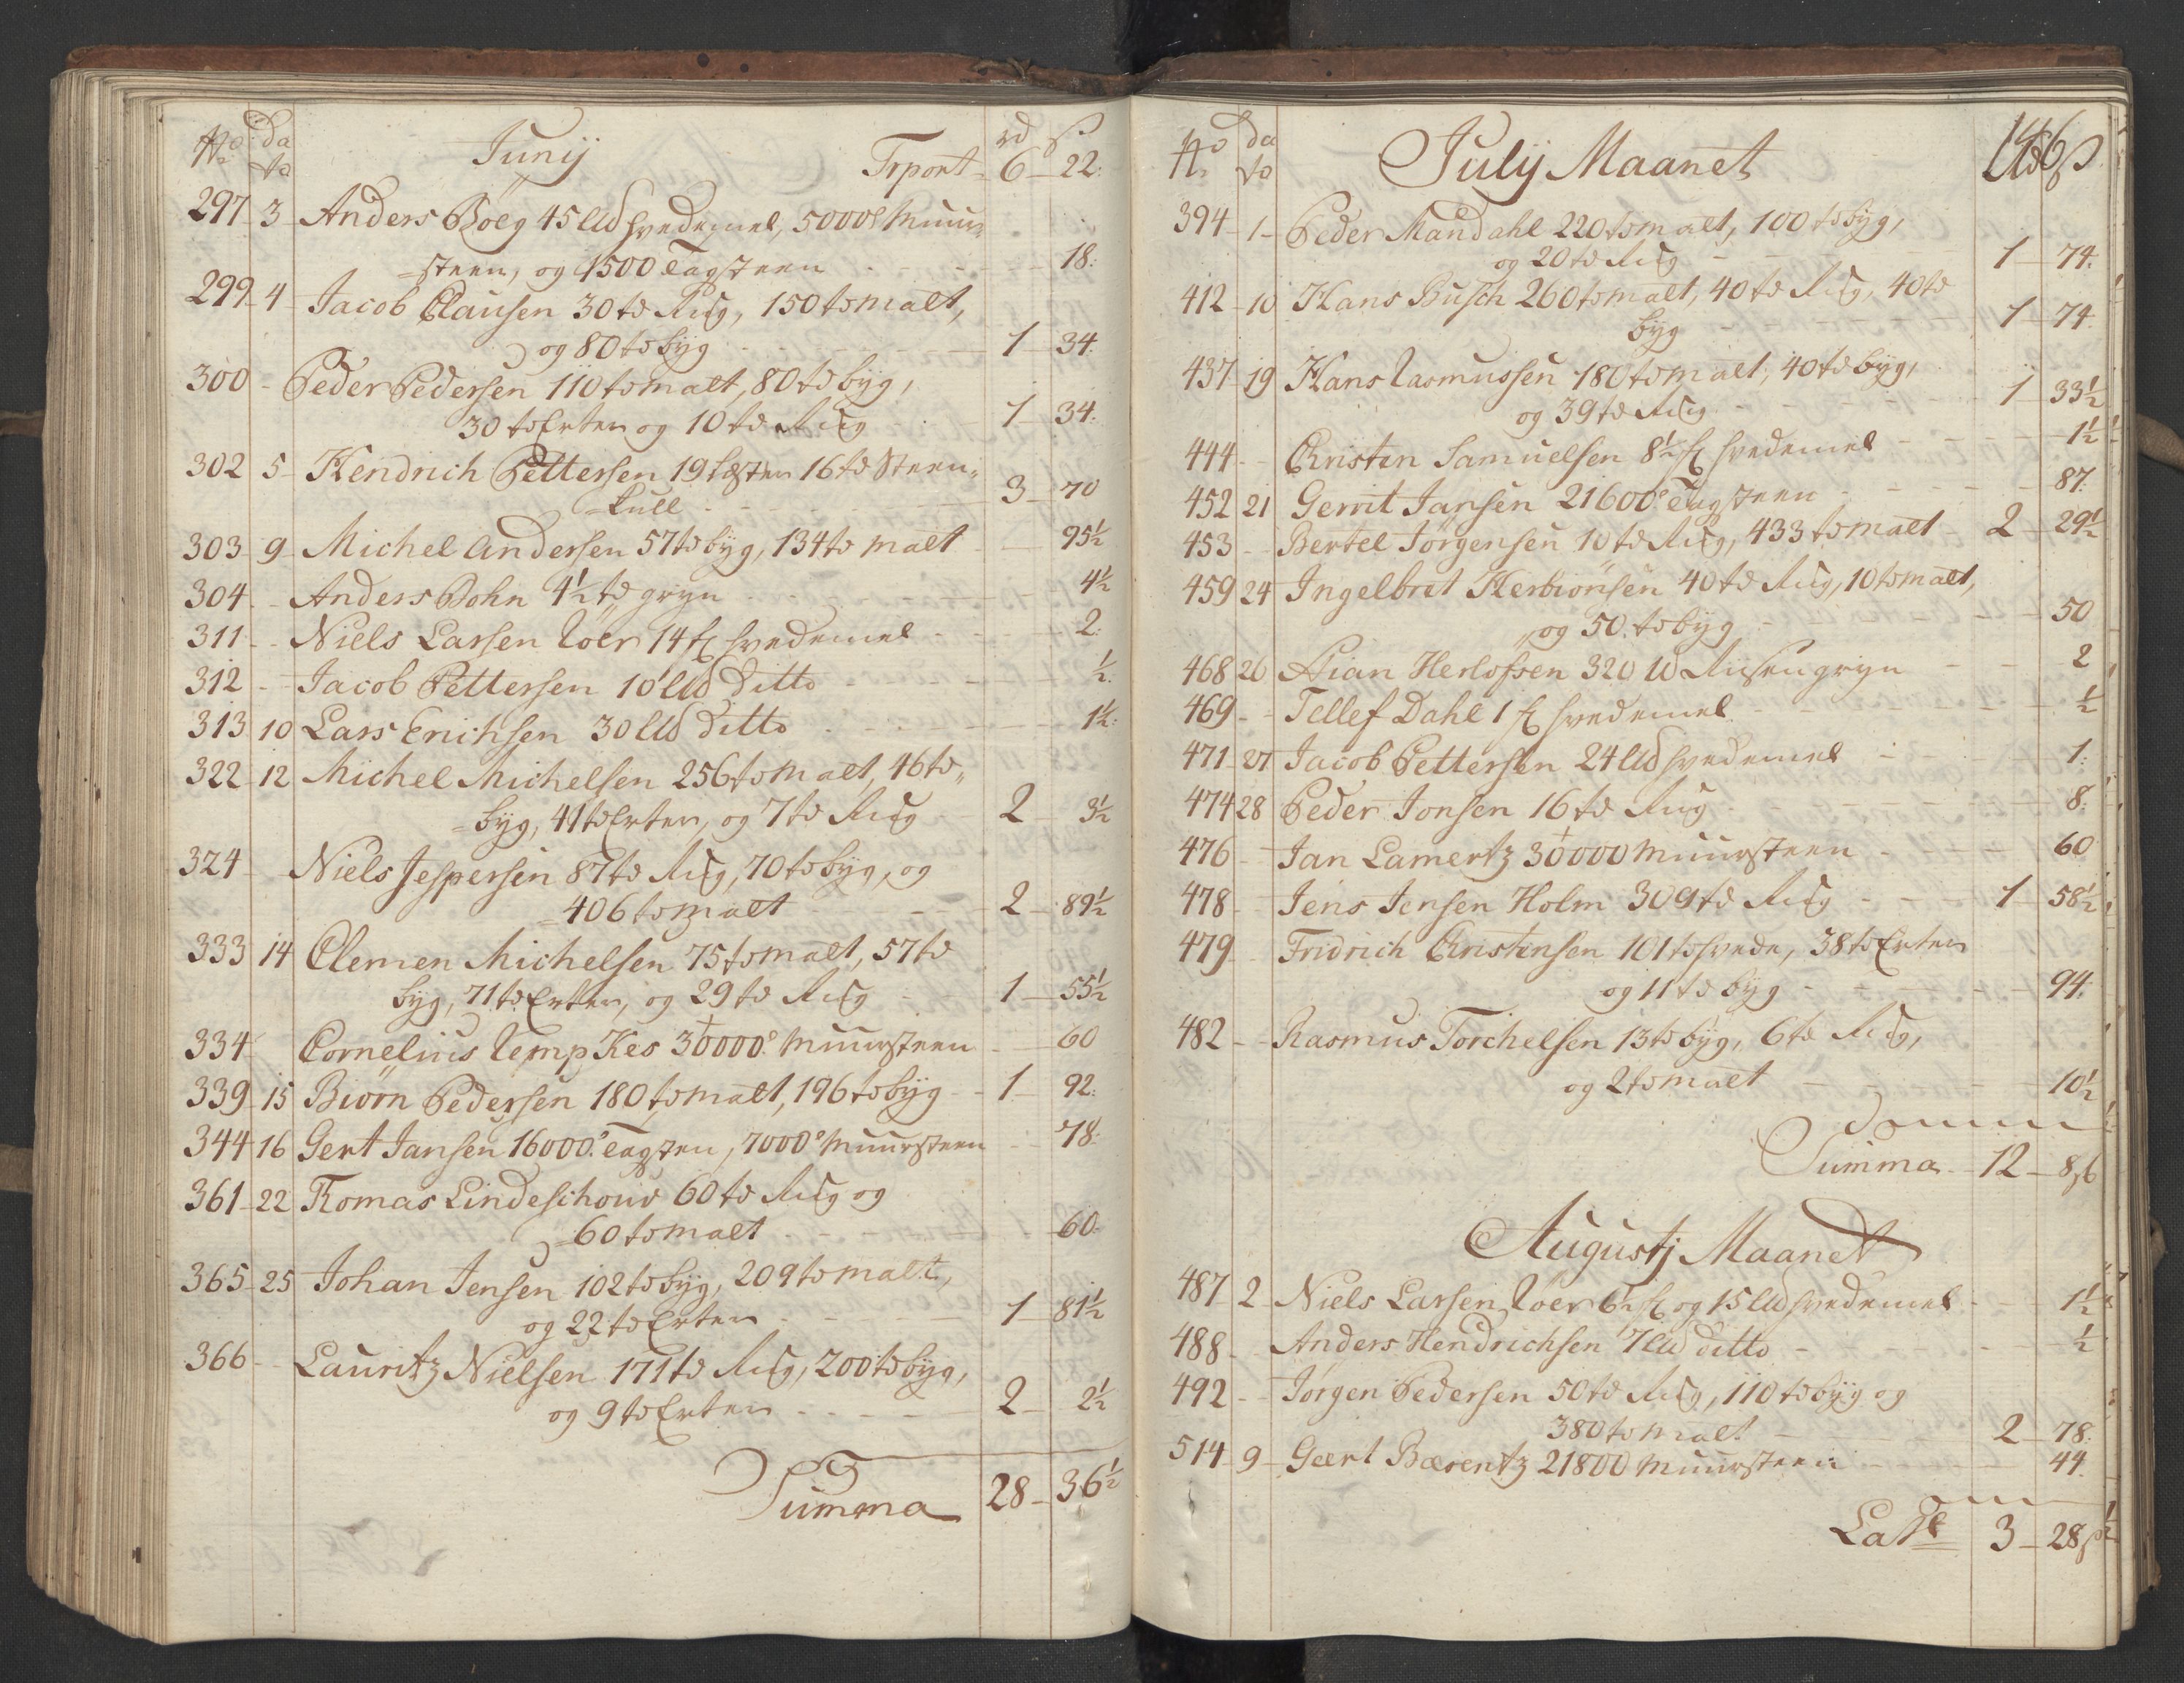 No dato Junij Trport rd ß
6 22.
297 3 Anders Bøeg 45 Lld hvedemel, 5000 Muur=
=steen, og 1500 Tagsteen 18.
299 4 Jacob Clausen 30 td Rug, 150 td malt,
og 80 td byg 1 34.
300 Peder Pedersen 110 td malt, 80 td byg,
30 td Erter og 10 td Rug 1 34.
302 5 Hendrich Pettersen 19 Læster 16 td Steen=
=kull 3 70
303 9 Michel Andersen 57 td byg, 134 td malt 95½
304 Anders Bohn 4½ td gryn 4½
311 Niels Larsen 14 hvedemel 2.
312 Jacob Pettersen 10 Lld ditto ½.
313 10 Lars Erichsen 30 Lld ditto 1½.
322 12 Michel Michelsen 256 td malt, 46 td
=byg, 41 td Erter, og 7 td Rug 2 3½
324 Niels Jespersen 87 td Rug, 70 td byg, og
=406 td malt 2 89½
333 14 Clemen Michelsen 75 td malt, 57 td
byg, 71 td Erter, og 29 td Rug 1 55½
334 Cornelius 30000 Muursteen 60
339 15 Biørn Pedersen 180 td malt, 196 td byg 1 92.
344 16 Gert Jansen 16000 Tagsten, 7000 Muursteen 78.
361 22 Thomas Lindeschouv 60 td Rug og
=60 td malt 60.
365 25 Johan Jensen 102 td byg, 209 td malt,
og 22 td Erter 1 81½
366 Lauritz Nielsen 171 td Rug, 200 td byg,
og 9 td Erter 2 2½
Summa 28 36½
146
No dato Julij Maanet rd ß
394 1 Peder Mandahl 220 td malt, 100 td byg,
og 20 td Rug 1 74.
412 10 Hans Busch 260 td malt, 40 td Rug, 40 td
byg 1 74.
437 19 Hans Rasmussen 180 td malt, 40 td byg,
og 39 td Rug 1 33½
444 Christen Samuelsen 8½ hvedemel 1½
452 21 Gerrit Jansen 21600 Tagsteen 87.
453 Bertel Jørgensen 10 td Rug, 433 td malt 2 29½
459 24 Ingelbret Herbiønsen 40 td Rug, 10 td malt,
og 50 td byg 50
468 26 Aian Herlofsen 320 Risengryn 2
469 Tellef Dahl 1 hvedemel ½
471 27 Jacob Pettersen 24 Lld hvedemel 1.
474 28 Peder Jonsen 16 td Rug 8.
476 Jan Lamertz 30000 Muursteen 60
478 Jens Jensen Holm 309 td Rug 1 58½
479 Fridrich Christensen 101 td hvede, 38 td Erter
og 11 td byg 94.
482 Rasmus Torchelsen 13 td byg, 6 td Rug,
og 2 td malt 10½
Summa 12 86
Augustj Maanet
487 2 Niels Larsen 6½ og 15 Lld hvedemel 1½
488 Anders Hendrichsen 7 Lld ditto ½
492 Jørgen Pedersen 50 td Rug, 110 td byg og
380 td malt 2 78.
514 9 Geert Barentz 21800 Muursteen 44.
Late 3 28½